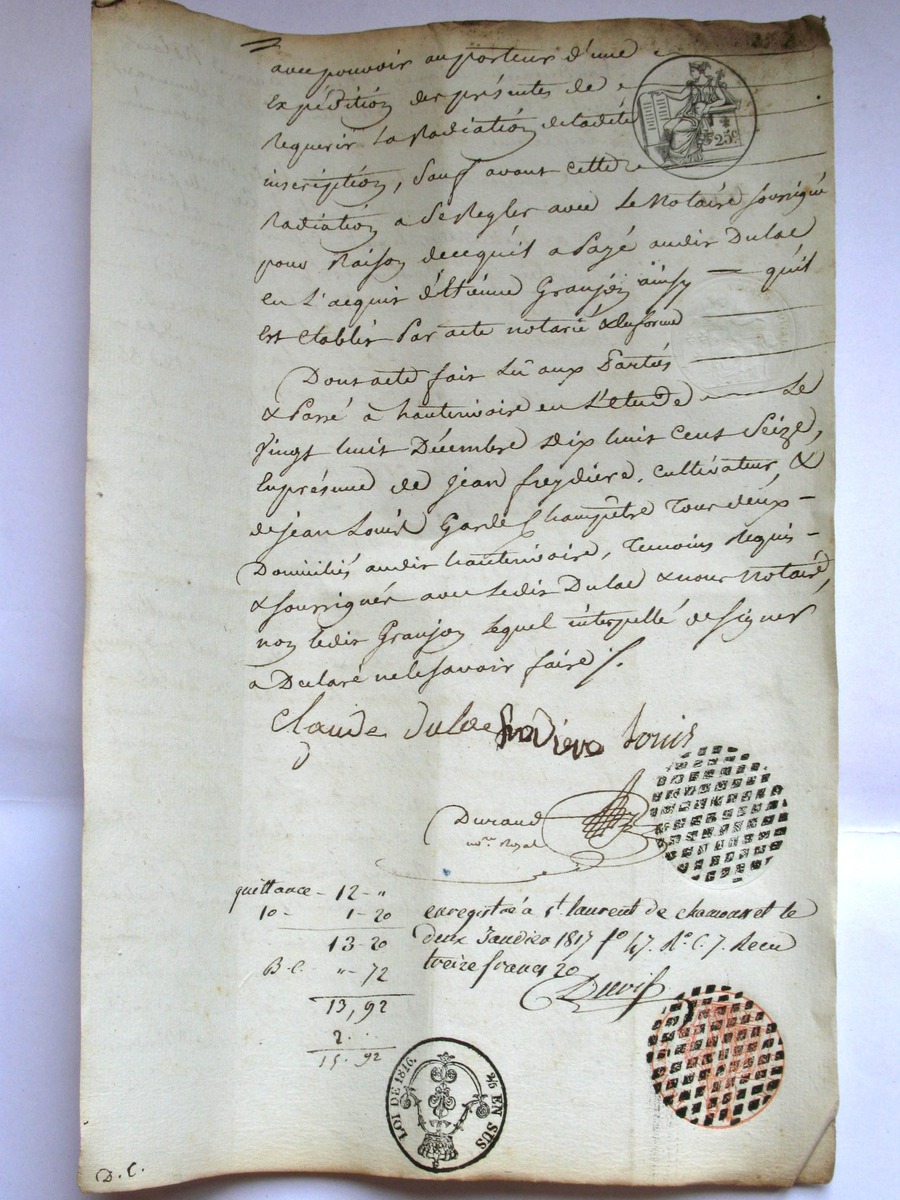 avec pouvoir au porteur d'une
Expédition des présentes de
Requerir La Radiation de ladite
inscription, Sauf avant cette
Radiation a Se Regler avec Le Notaire Soussigné
pour Raison de ce qu'il a Payé audit Dulac
en L'acquit d'Etienne Granjon ainsy qu'il
Est etablit Par acte notarié
Dont acte fait Lû aux Parties
& Passé à hauterivoire en L'etude Le
Vingt huit Décembre dix huit Cent Seize,
En présence de jean freydiere, cultivateur, &
de jean Louis Garde Champêtre Tous deux
Domiciliés audit hauterivoire, Temoins Requis
& Soussignés avec Ledit Dulac & nous Notaire,
non Ledit Granjon Lequel interpellé de Signer
a Declaré ne le Savoir faire /.
Claude dulac fradiere Louis
Durand
nre Royal
quittance - 12 - "
10 - 1 - 20
13 - 20
B.C. " - 72
13, 92
2 . .
15 . 92
enregistré à St laurent de chamousset le
deux Janvier 1817 fo 47. Ro C. 7. Recu
treize francs 20
25c
LOI DE 1816.
EN SUS
D. C.